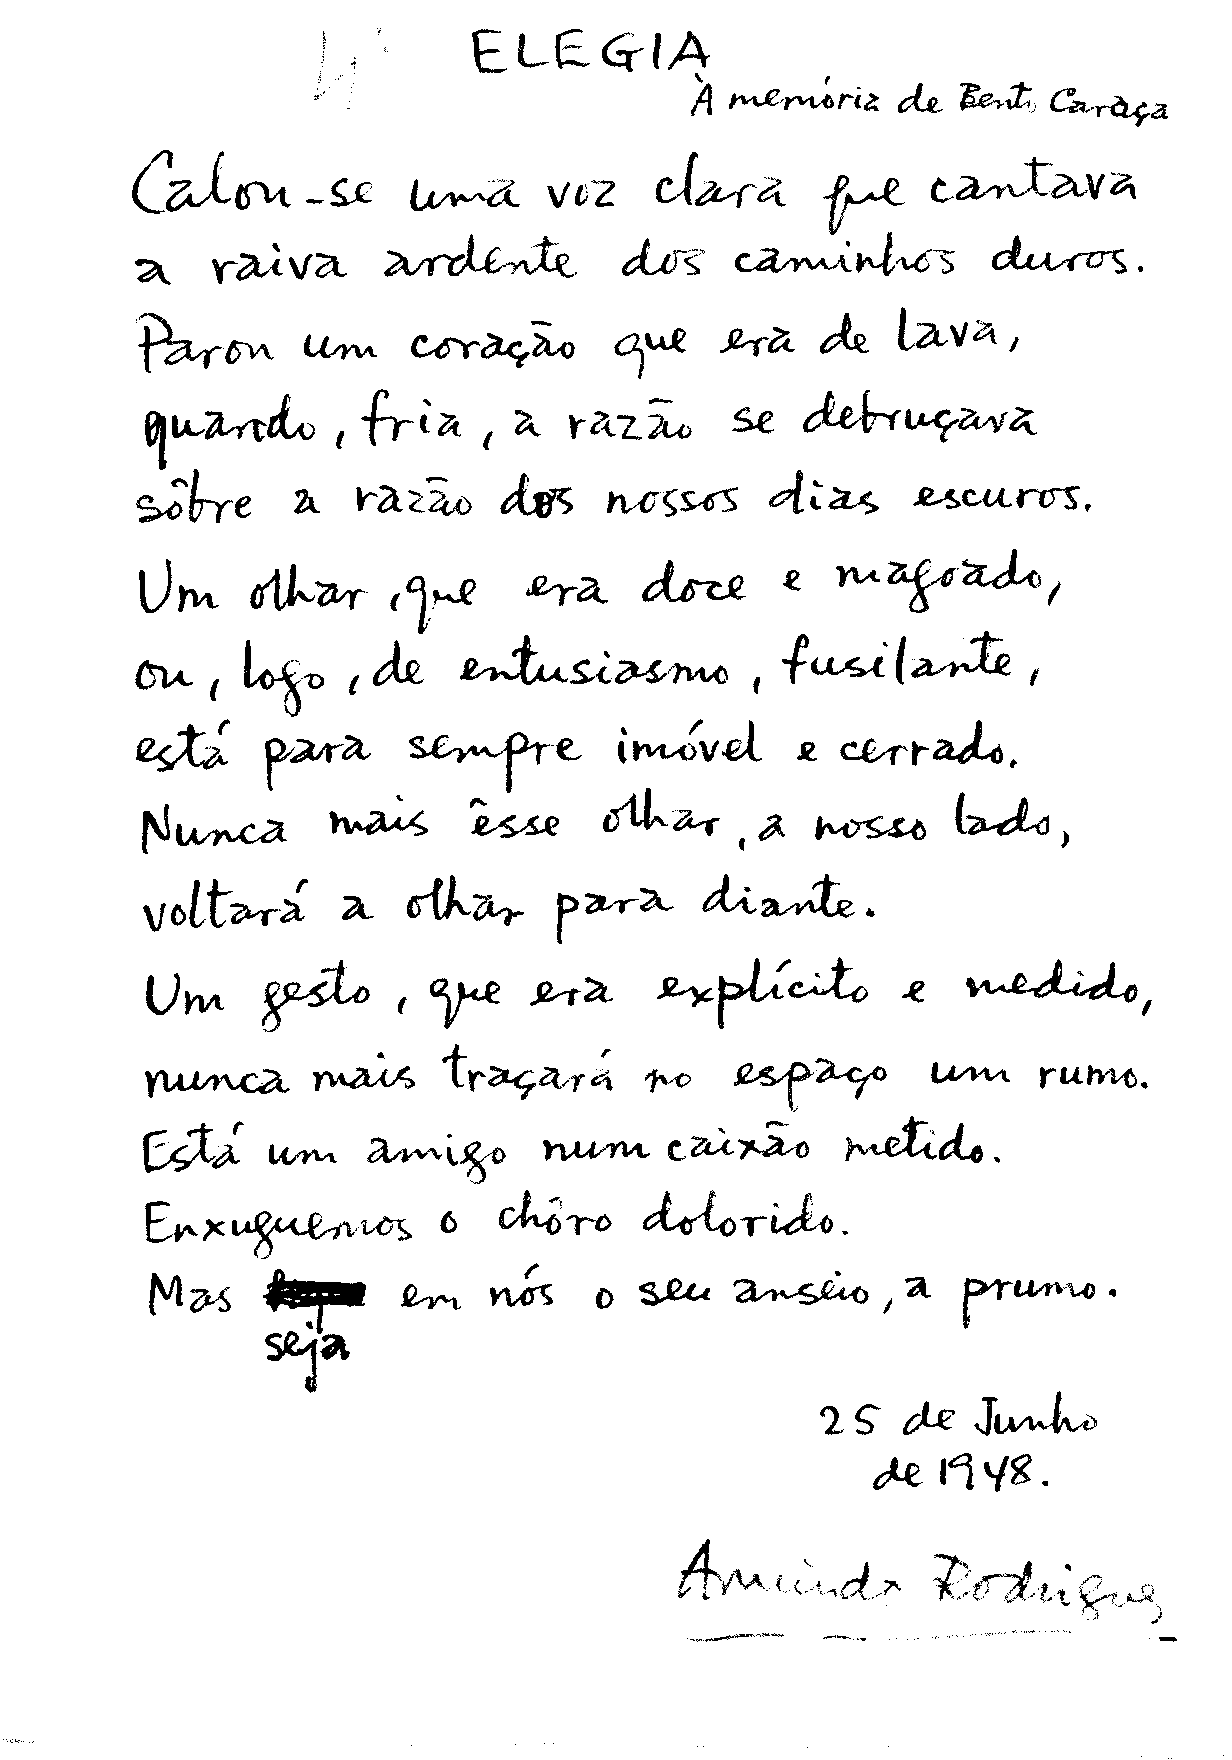 ELEGIA
À memória de Bento Caraça
Calou-se uma voz clara que cantava
a raiva ardente dos caminhos duros.
Parou um coração que era de lava,
quando, fria, a razão se debruçava
sôbre a razão dos nossos dias escuros.
Um olhar, que era doce e magoado,
ou, logo, de entusiasmo, fusilante,
está para sempre imóvel e cerrado.
Nunca mais êsse olhar, a nosso lado,
voltará a olhar para diante.
Um gesto, que era explícito e medido,
nunca mais traçará no espaço um rumo.
Está um amigo num caixão metido.
Enxuguemos o chôro dolorido.
Mas em nós o seu anseio, a prumo.
seja
25 de Junho
de 1948.
Armindo Rodrigues